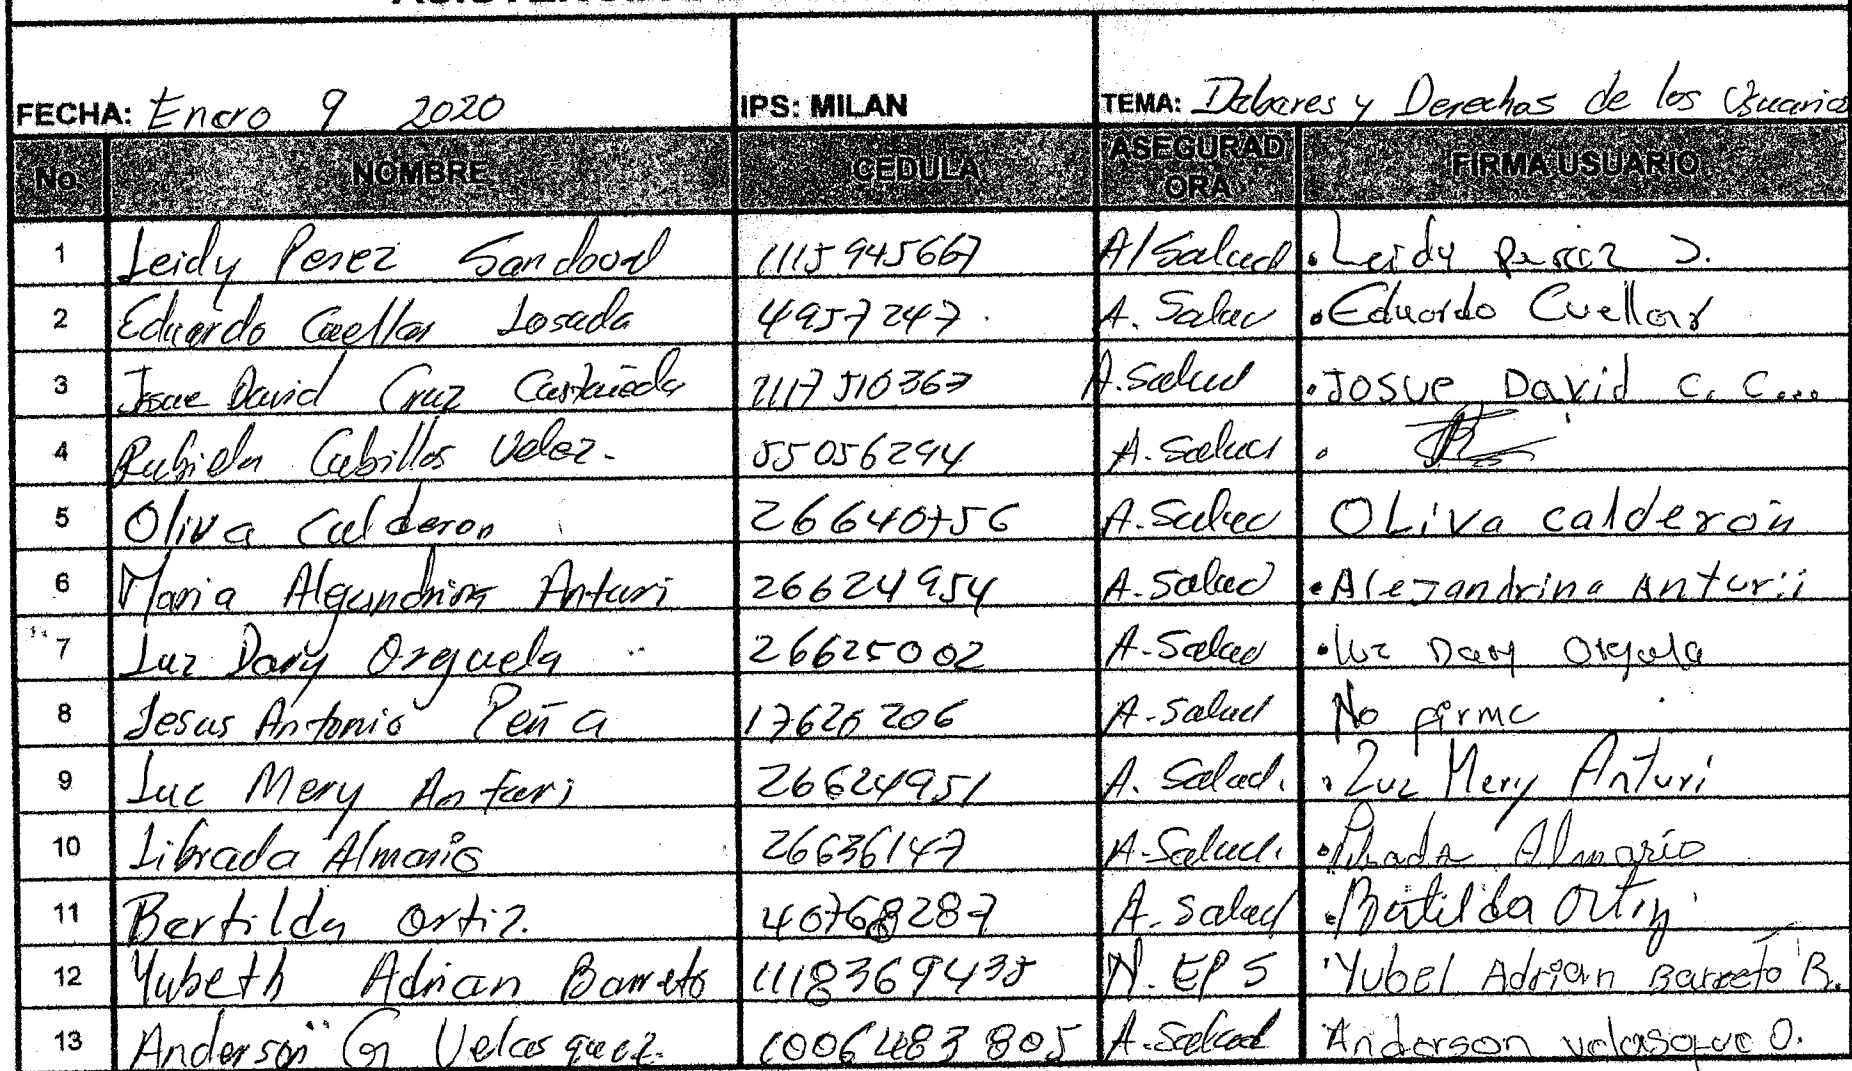 FECHA: Enero 9 2020 IPS: MILAN TEMA: Debares y Derechos de los Usuarios
No. NOMBRE CEDULA ASEGURADORA FIRMA USUARIO
1 Leidy Perez Sandoval 1115945667 A/Salud Leidy perez S.
2 Eduardo Cuellar Losada 4957247 A. Salud Eduardo Cuellar
3 Josue David Cruz Castañeda 1117510367 A. Salud Josue David C. C...
4 Rubiela Cubillos Velez. 55056294 A. Salud
5 Oliva Calderon 26640756 A. Salud OLiva calderon
6 Maria Alejandrina Anturi 26624954 A. Salud Alejandrina Anturi
7 Luz Dary Orejuela 26625002 A. Salud luz Dary
8 Jesus Antonio Peña A. Salud No firma
9 Luz Mery Anturi 26624951 A. Salud. Luz Mery Anturi
10 Librada Almario 26636147 A. Salud. Librada Almario
11 Bertilda Ortiz. 40768287 A. Salud Bertilda Ortiz
12 Yubeth Adrian Barreto 1118369438 N. EPS Yubel Adrian Barreto R.
13 Anderson G Velasquez. 1006483805 A. Salud Anderson velasque O.